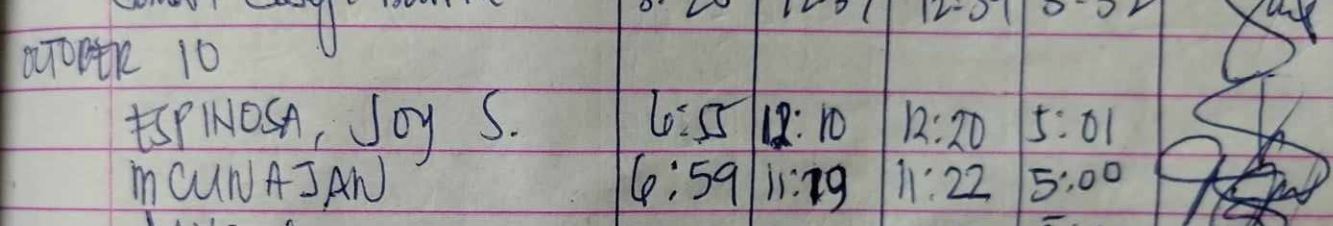 OCTOBER 10
ESPINOSA, Joy S. 6:55 12:10 12:20 5:01
M CUNAJAN 6:59 11:19 11:22 5:00